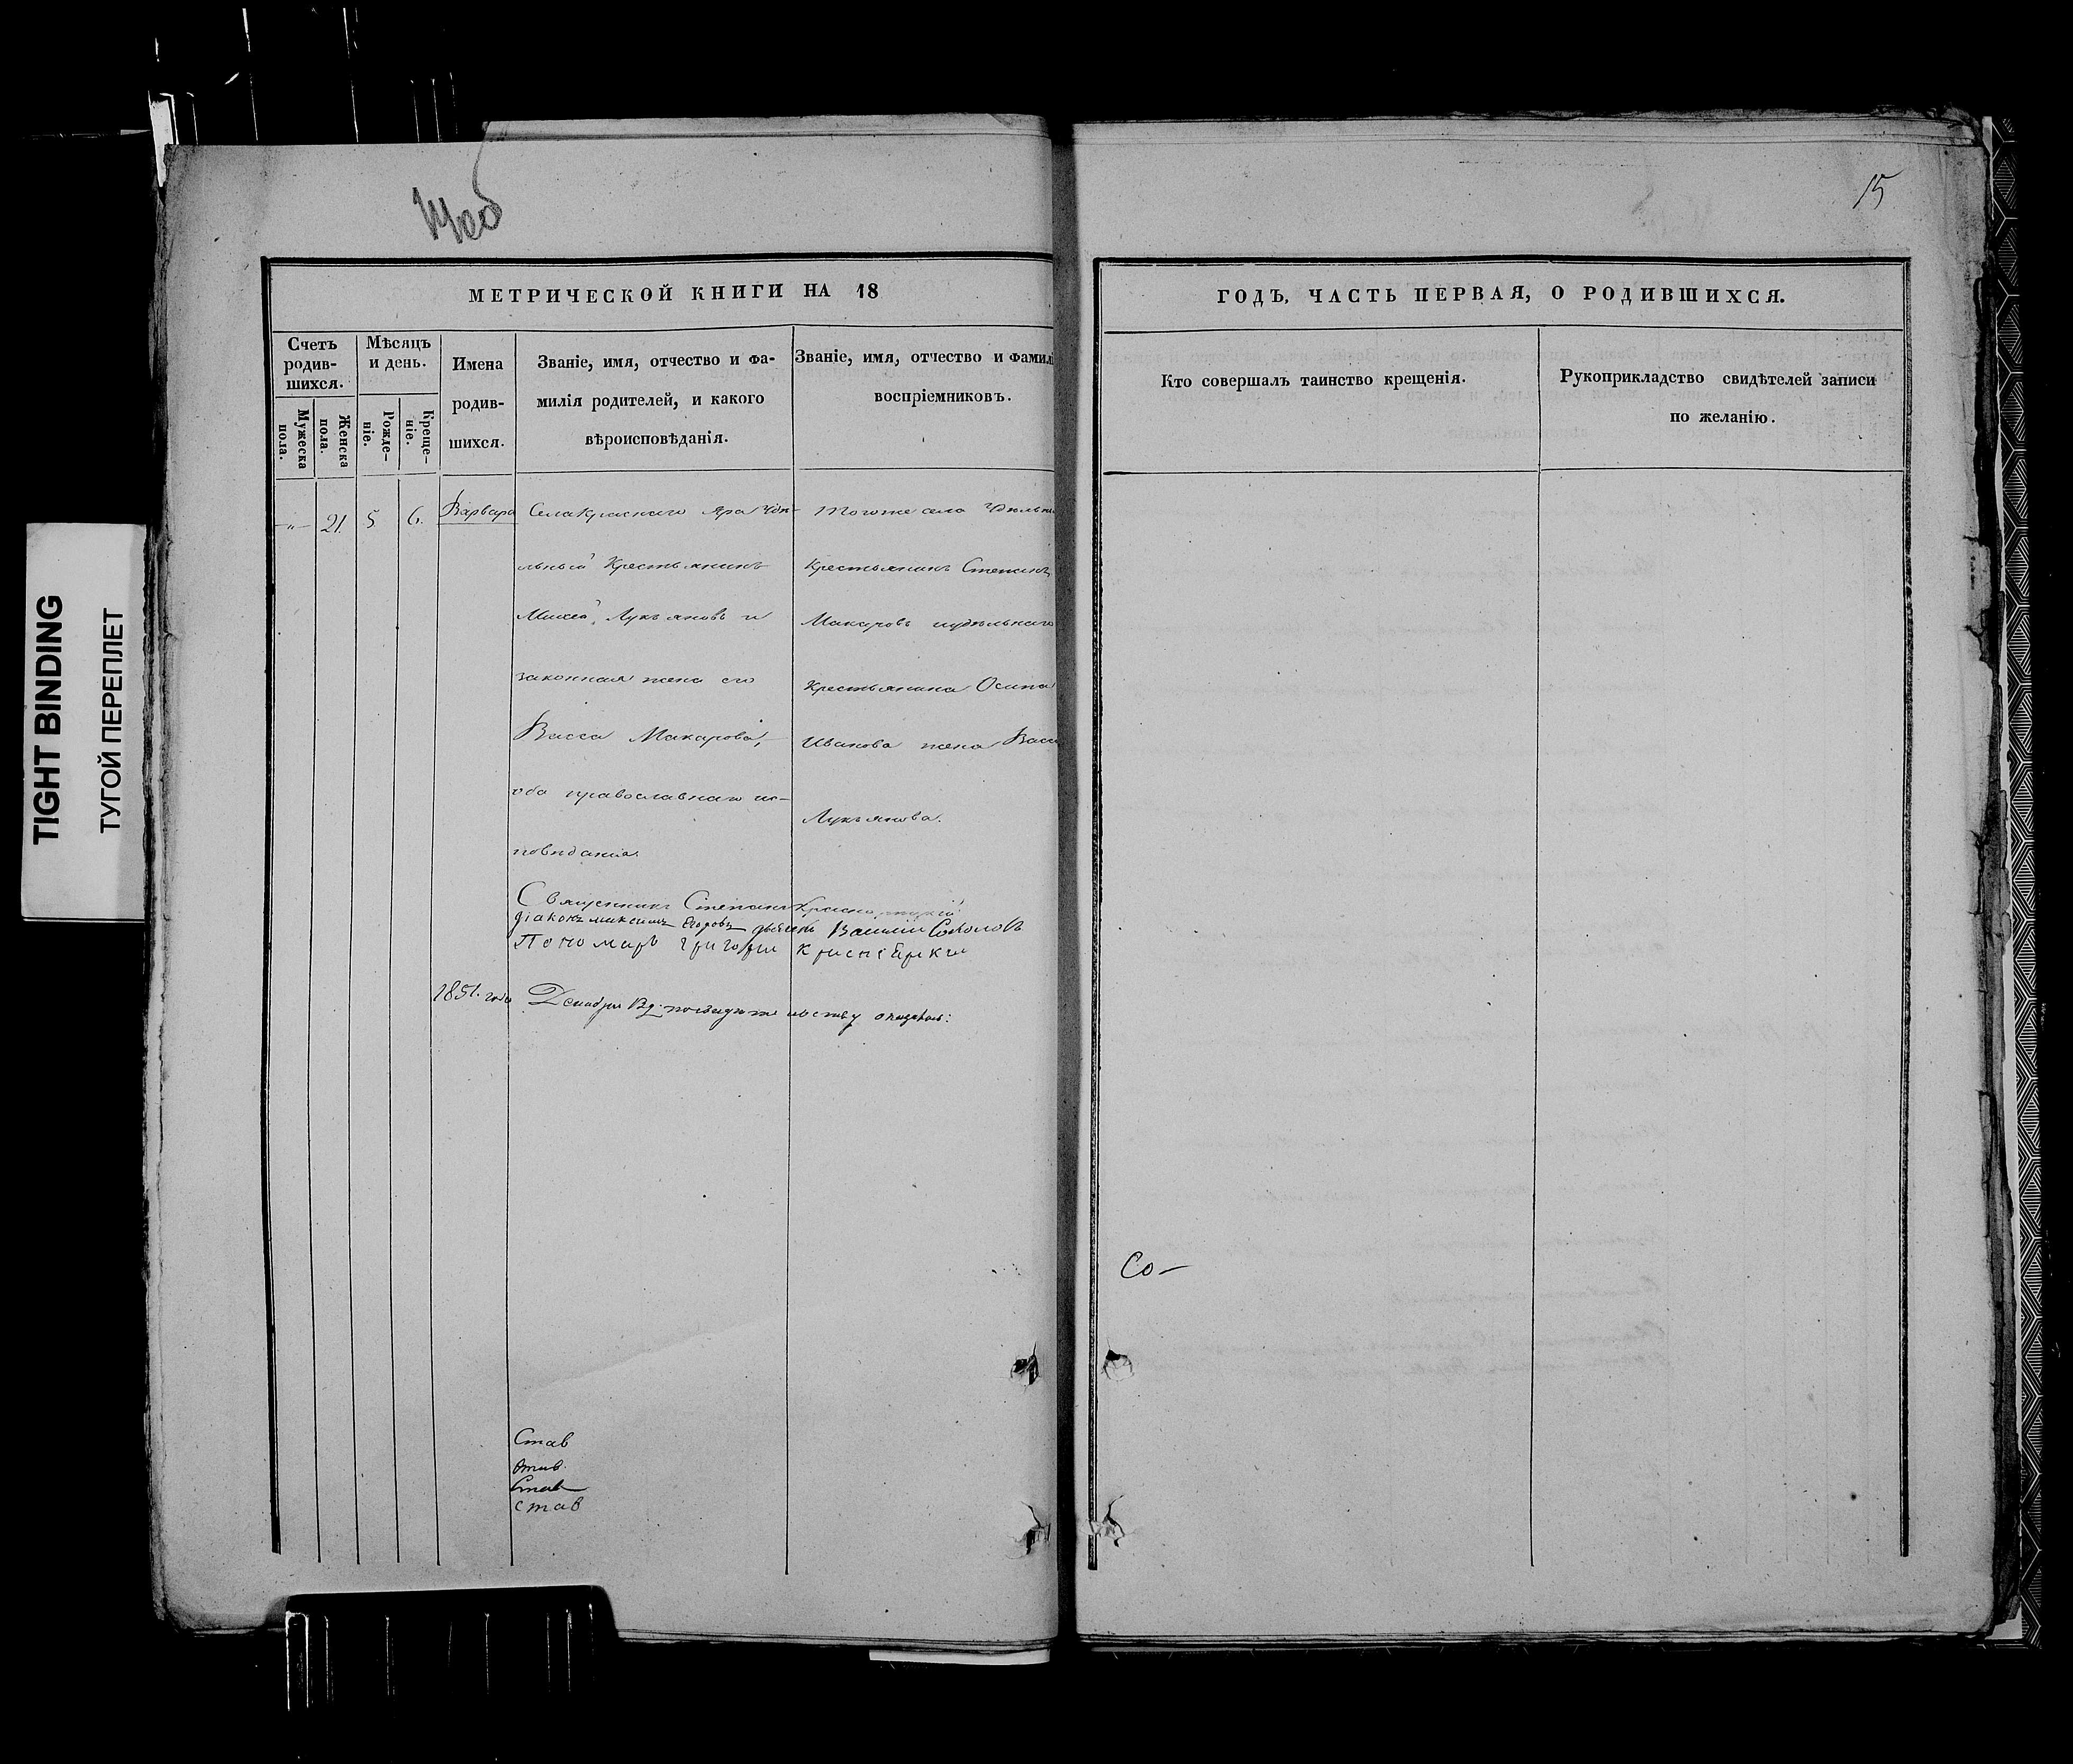 15
МЕТРИЧЕСКОЙ КНИГИ НА 18
ГОДЪ, ЧАСТЬ ПЕРВАЯ, О РОДИВШИХСЯ.
Счетъ
родив-
шихся.
Мужеска
пола.
Женска
пола.
Мѣсяцъ
и день.
Рожде-
ніе.
Креще-
ніе.
Имена
родив-
шихся.
Званіе, имя, отчество и фа-
милія родителей, и какого
вѣроисповѣданія.
Званіе, имя, отчество и фамилі
воспріемниковъ.
Кто совершалъ таинство крещенія.
Рукоприкладство свидѣтелей записи
по желанію.
-"- 21. 5 6. Варвара
Села Краснаго Яра Удѣ-
льный Крестьянинъ
Лукъяновъ и
законная жена его
Васса Макарова,
оба православнаго ис-
повѣданія.
Тогоже села Удѣльны
Крестьянинъ Степанъ
Макаровъ иудѣльнаго
Крестьянина Осипа
Иванова жена Васс
Лукъянова.
Священникъ Степанъ
Діаконъ Максимъ Егоровъ Василій Соколовъ
Пономарь Григорій
1851. года
Став
Став
Став
став
Со-
TIGHT BINDING
ТУГОЙ ПЕРЕПЛЕТ